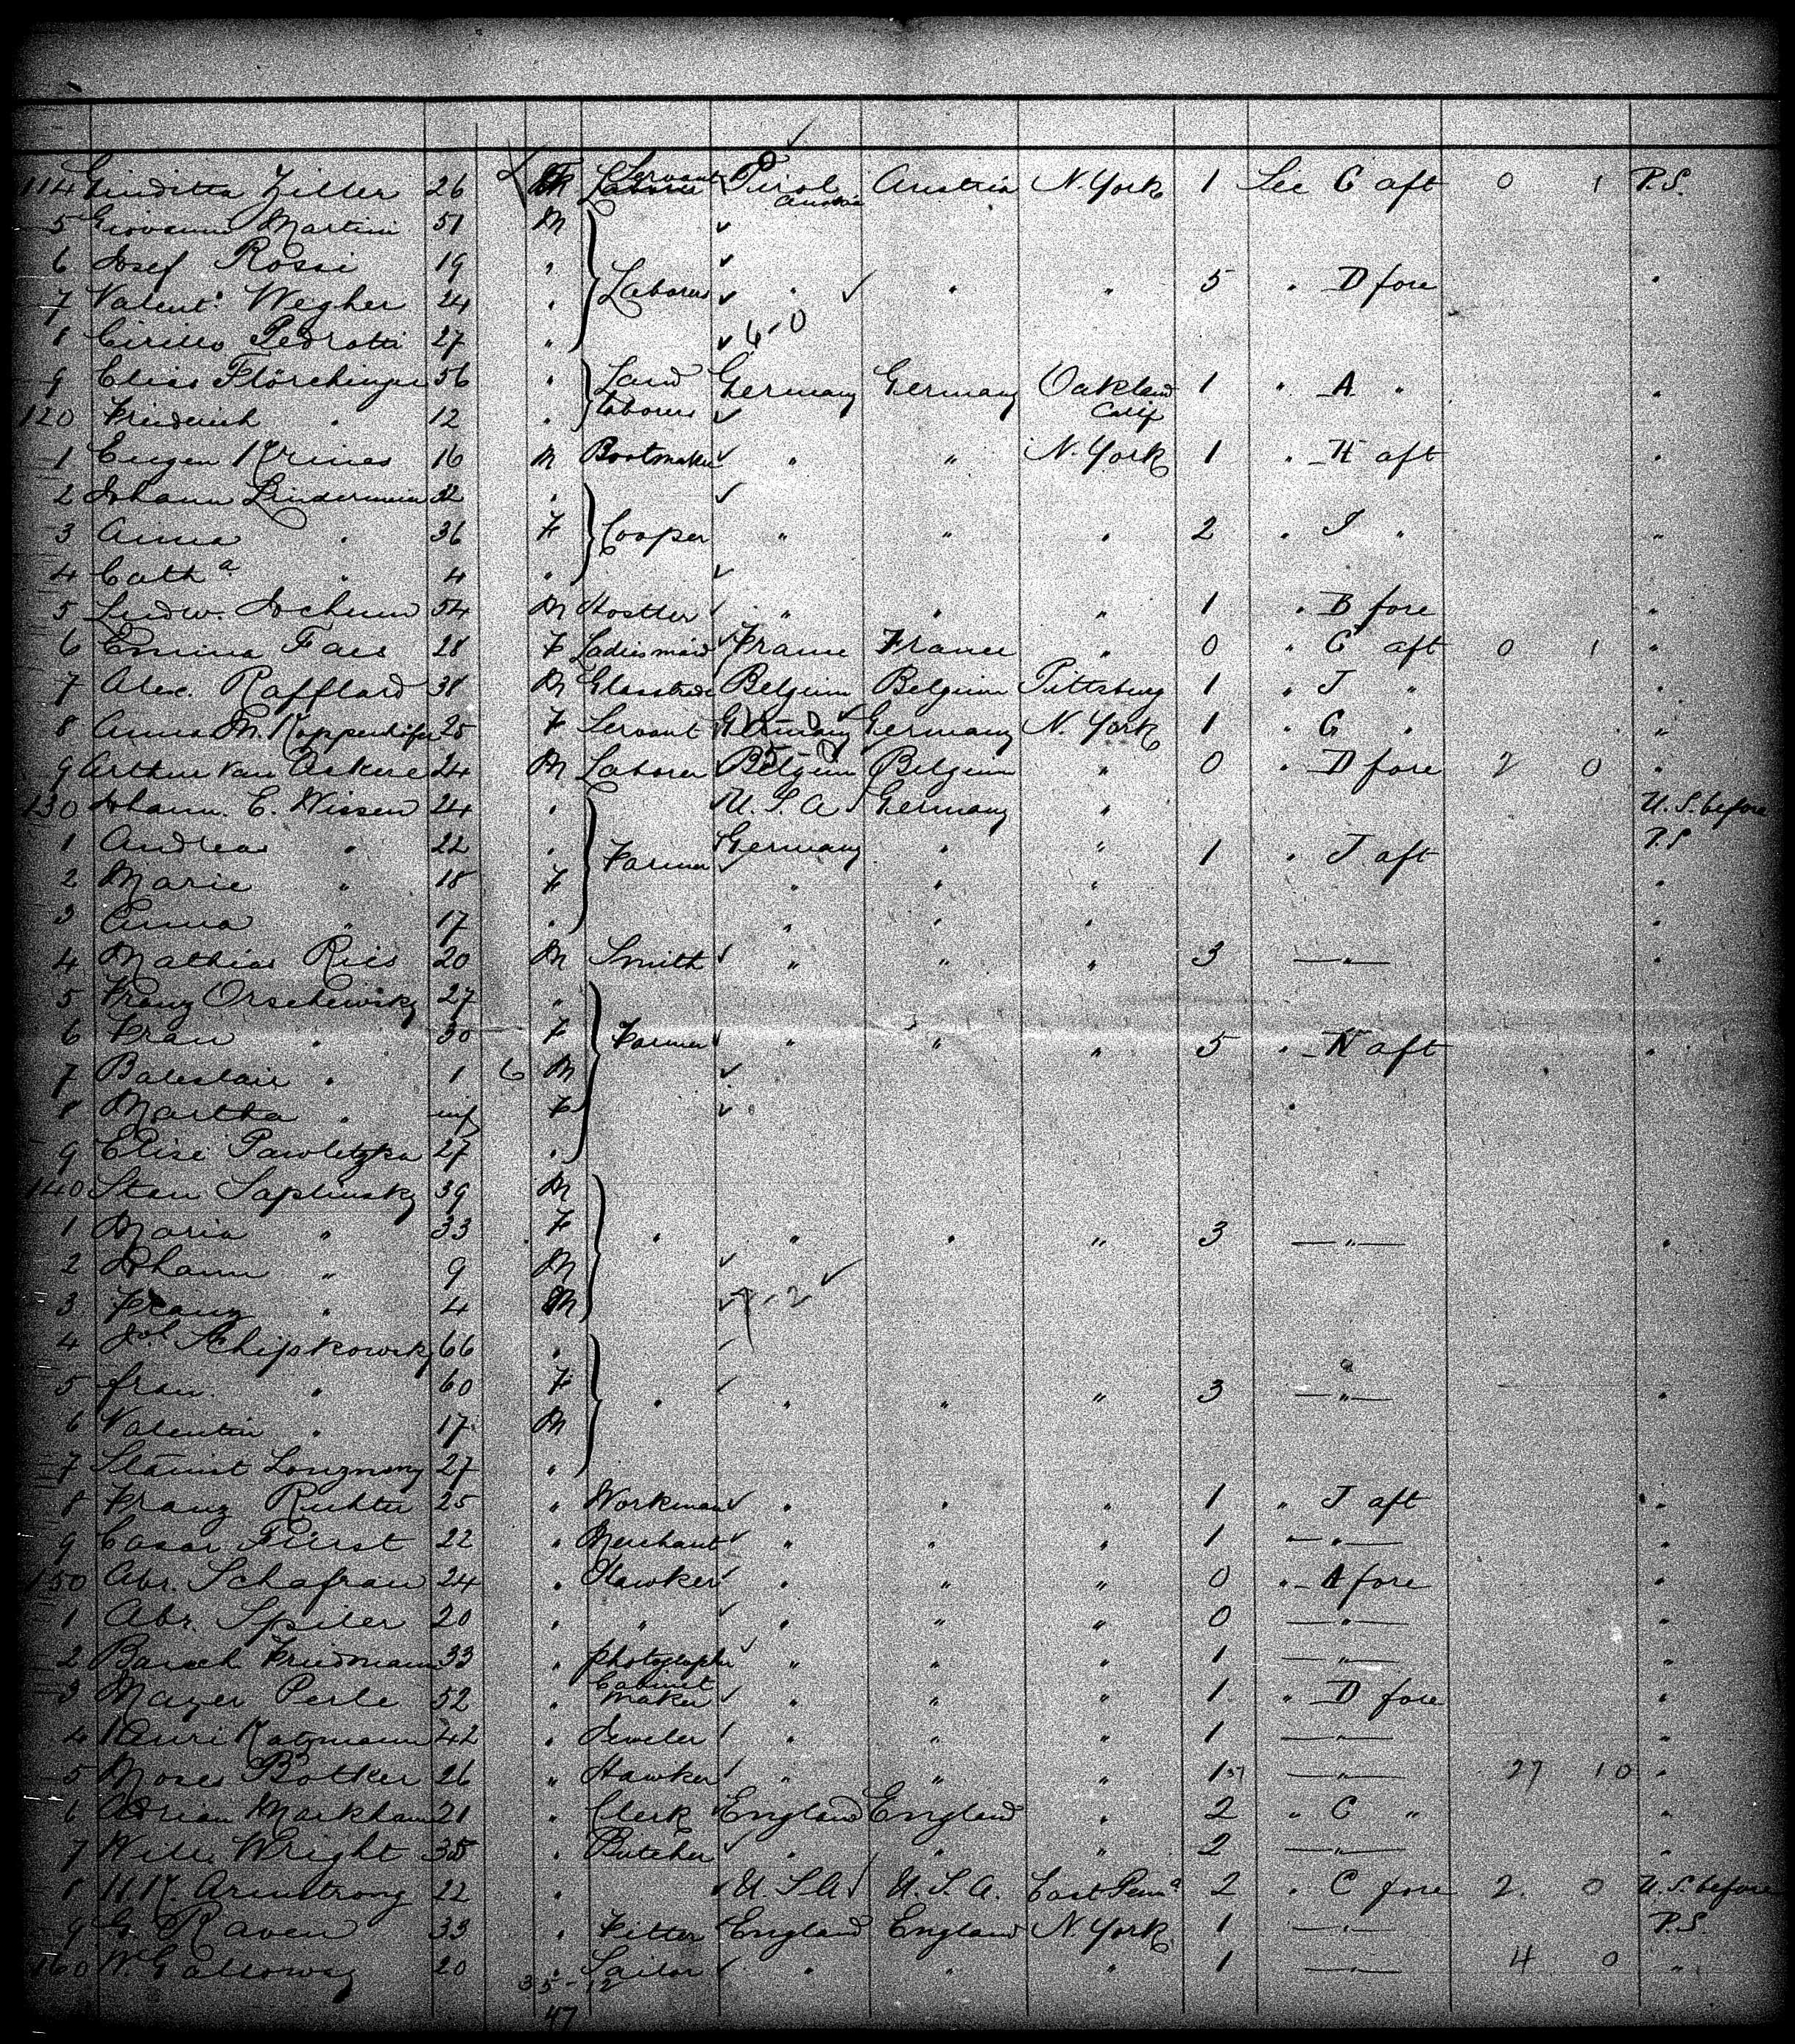 114 Giuditta Ziller 26 F Servant Tirol Austria Austria N. York 1 See C aft 0 1 P.S.
5 Giovanni Martini 51 M
6 Josef Rossi 19 "
7 Valent. Wegher 24 " Laborers " " " 5 " D fore "
8 Cirillo Pedrotti 27 " 6-0
9 Elias Flörchinger 56 " Land Laborers Germany Germany Oakland Calif 1 " A " "
120 Friederich " 12 "
1 Eugen Krines 16 M Bootmaker " " N. York 1 " H aft "
2 Johann Lindermein 32 "
3 Anna " 36 F Cooper " " " 2 " J " "
4 Cath a " 4 "
5 Ludw. Jochum 54 M Hostler " " " 1 " B fore "
6 Emma Faes 28 F Ladies maid France France " 0 " C aft 0 1 "
7 Alex. Rafflard 38 M Belgium Belgium Pittsburg 1 " J " "
8 Anna M. Koppenhöfer 25 F Servant Germany Germany N. York 1 " G " "
9 Arthur Van Askere 24 M Laborer Belgium Belgium " 0 " D fore 2 0 "
130 Johann. E. Nissen 24 " U.S.A Germany " U.S. before
1 Andreas " 22 " Farmer Germany " " 1 " J aft P.S
2 Marie " 18 F " " " "
3 Anna " 17 " " " " "
4 Mathias Ries 20 M Smith " " " 3 — " — "
5 Franz Orschewsky 27 "
6 Frau " 30 F Farmer " " " 5 " N aft "
7 " 1 6 M
8 Martha " inf F
9 Elise Pawletzka 27 "
140 Stan Saplinsky 39 M
1 Maria " 33 F " " " " 3 — " — "
2 Johann " 9 M
3 Franz " 4 M 7-2
4 Joh Schipkowsky 66 "
5 frau " 60 F " " " " 3 — " — "
6 Valentin " 17 M
7 27 "
8 Franz Richter 25 " Workman " " " 1 " J aft "
9 Casar Fürst 22 " Merchant " " " 1 — " — "
150 Abr. Schafran 24 " Hawker " " " 0 " A fore "
1 Abr. Spiler 20 " " " " " 0 — " — "
2 Baruch Friedmann 33 " photographer " " " 1 — " — "
3 Mayer Perle 52 " Cabinet maker " " " 1 " D fore "
4 Henri Katzmann 42 " Jeweler " " " 1 — " — "
5 Moses Botker 26 " Hawker " " " 1 37 — " — 27 10 "
6 Adrian Markham 21 " Clerk England England " 2 " C " "
7 Will. Wright 35 " Butcher " " " 2 — " — "
8 H.K. Armstrong 22 " U.S.A U.S.A. East Penn a 2 " C fore 2. 0 U.S. before
9 G Raven 33 " Fitter England England N. York 1 — " — P.S.
160 W Galloway 20 " Sailor " " " 1 — " — 4 0 "
35-12
47